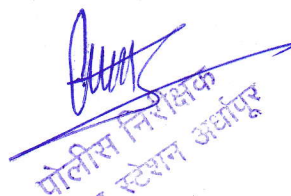 पोलीस निरीक्षक
स्टेशन अर्धापूर